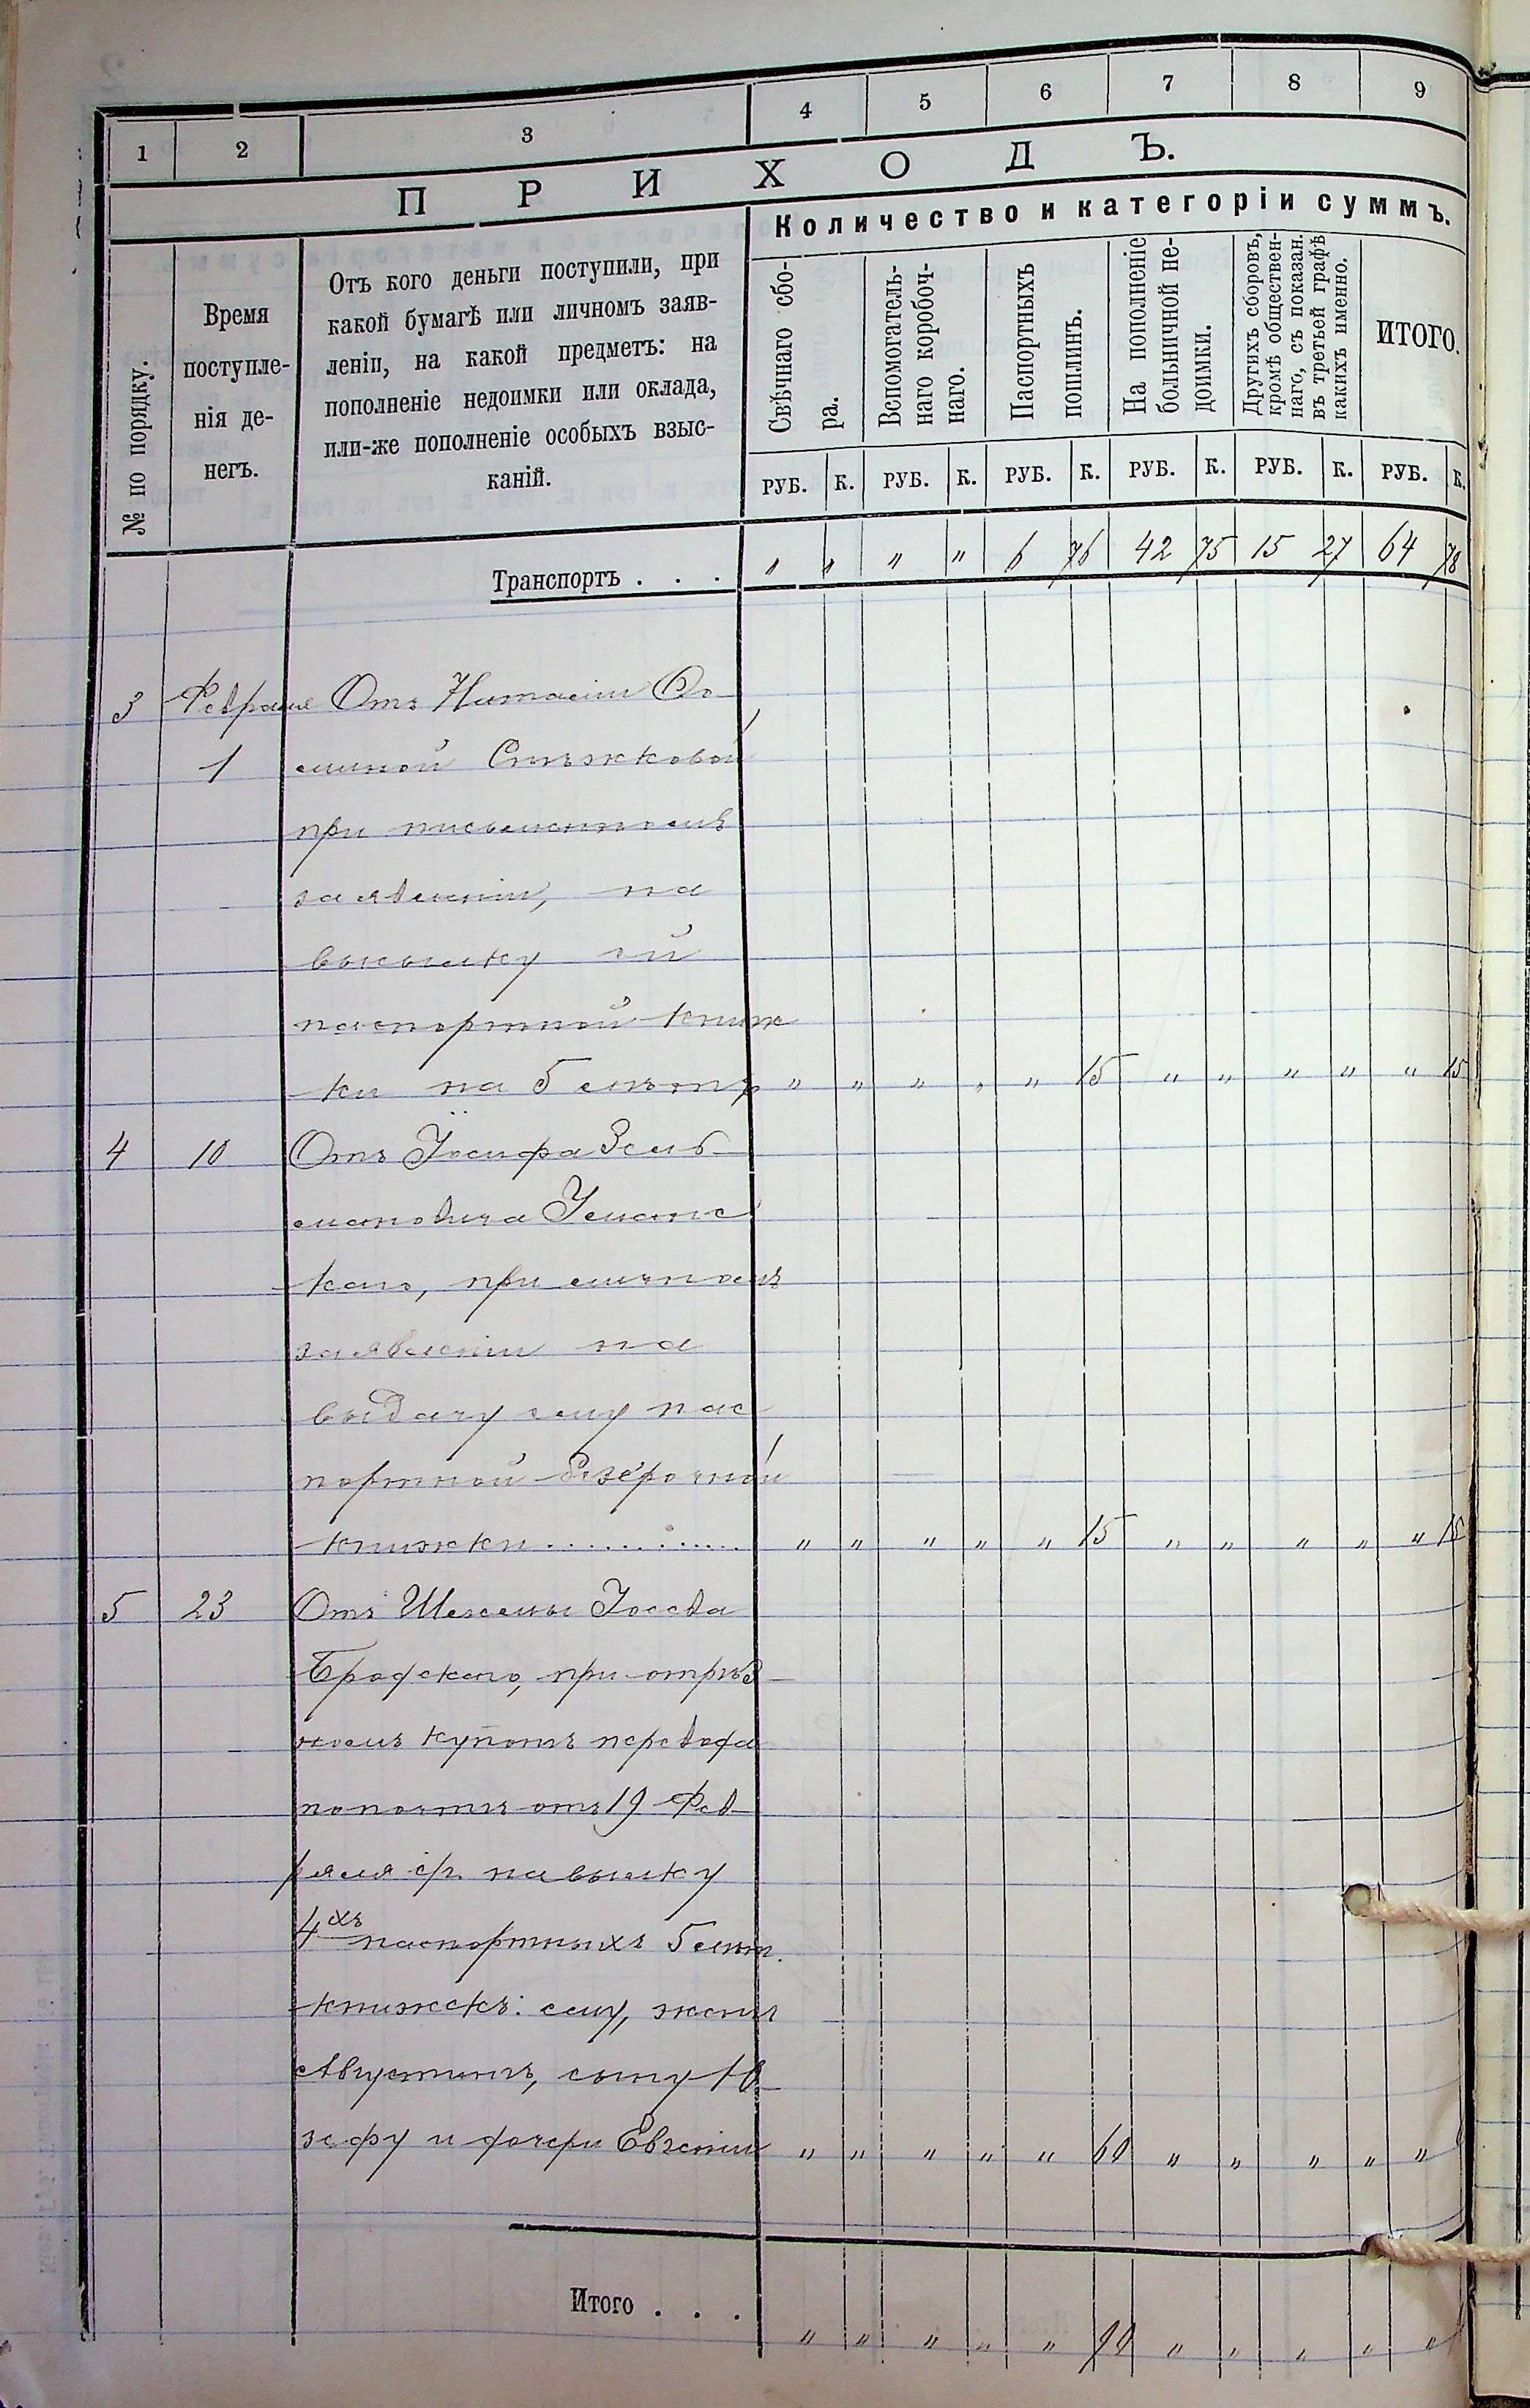 1 2 3 4 5 6 7 8 9
ПРИХОДЪ.
Количество и категоріи суммъ.
№ по порядку.
Время
поступле-
нія де-
негъ.
Отъ кого деньги поступили, при
какой бумагѣ или личномъ заяв-
леніи, на какой предметъ: на
пополненіе недоимки или оклада,
или-же пополненіе особыхъ взыс-
каній.
Свѣчнаго сбо-
ра.
Вспомогатель-
наго коробоч-
наго.
Паспортныхъ
пошлинъ.
На пополненіе
больничной не-
доимки.
Другихъ сборовъ,
кромѣ обществен-
наго, съ показан.
въ третьей графѣ
какихъ именно.
ИТОГО.
РУБ. К. РУБ. К. РУБ. К. РУБ. К. РУБ. К. РУБ. К.
Транспортъ . . . " " " " 6 76 42 75 15 27 64 78
3 Февраля Отъ
1
при письменномъ
заявленіи, на
высылку ей
паспортной книж
ки на 5 лѣтъ " " " " " 15 " " " " " 15
4 10 Отъ Іосифа Зель
мановича Уманс
каго, при личномъ
заявленіи на
выдачу ему пас
портной безсрочной
книжки............ " " " " " 15 " " " " " 15
5 23 Отъ
Бродскаго, при отрѣз
номъ купонѣ перевода
по почтѣ отъ 19 Фев
раля с/г. на высылку
4хъ паспортныхъ 5 лѣтн.
книжекъ: ему, женѣ
Августинѣ, сыну Ю
зефу и дочери Евгеніи " " " " " 60 " " " " "
Итого . . . " " " " " 90 " " " " "